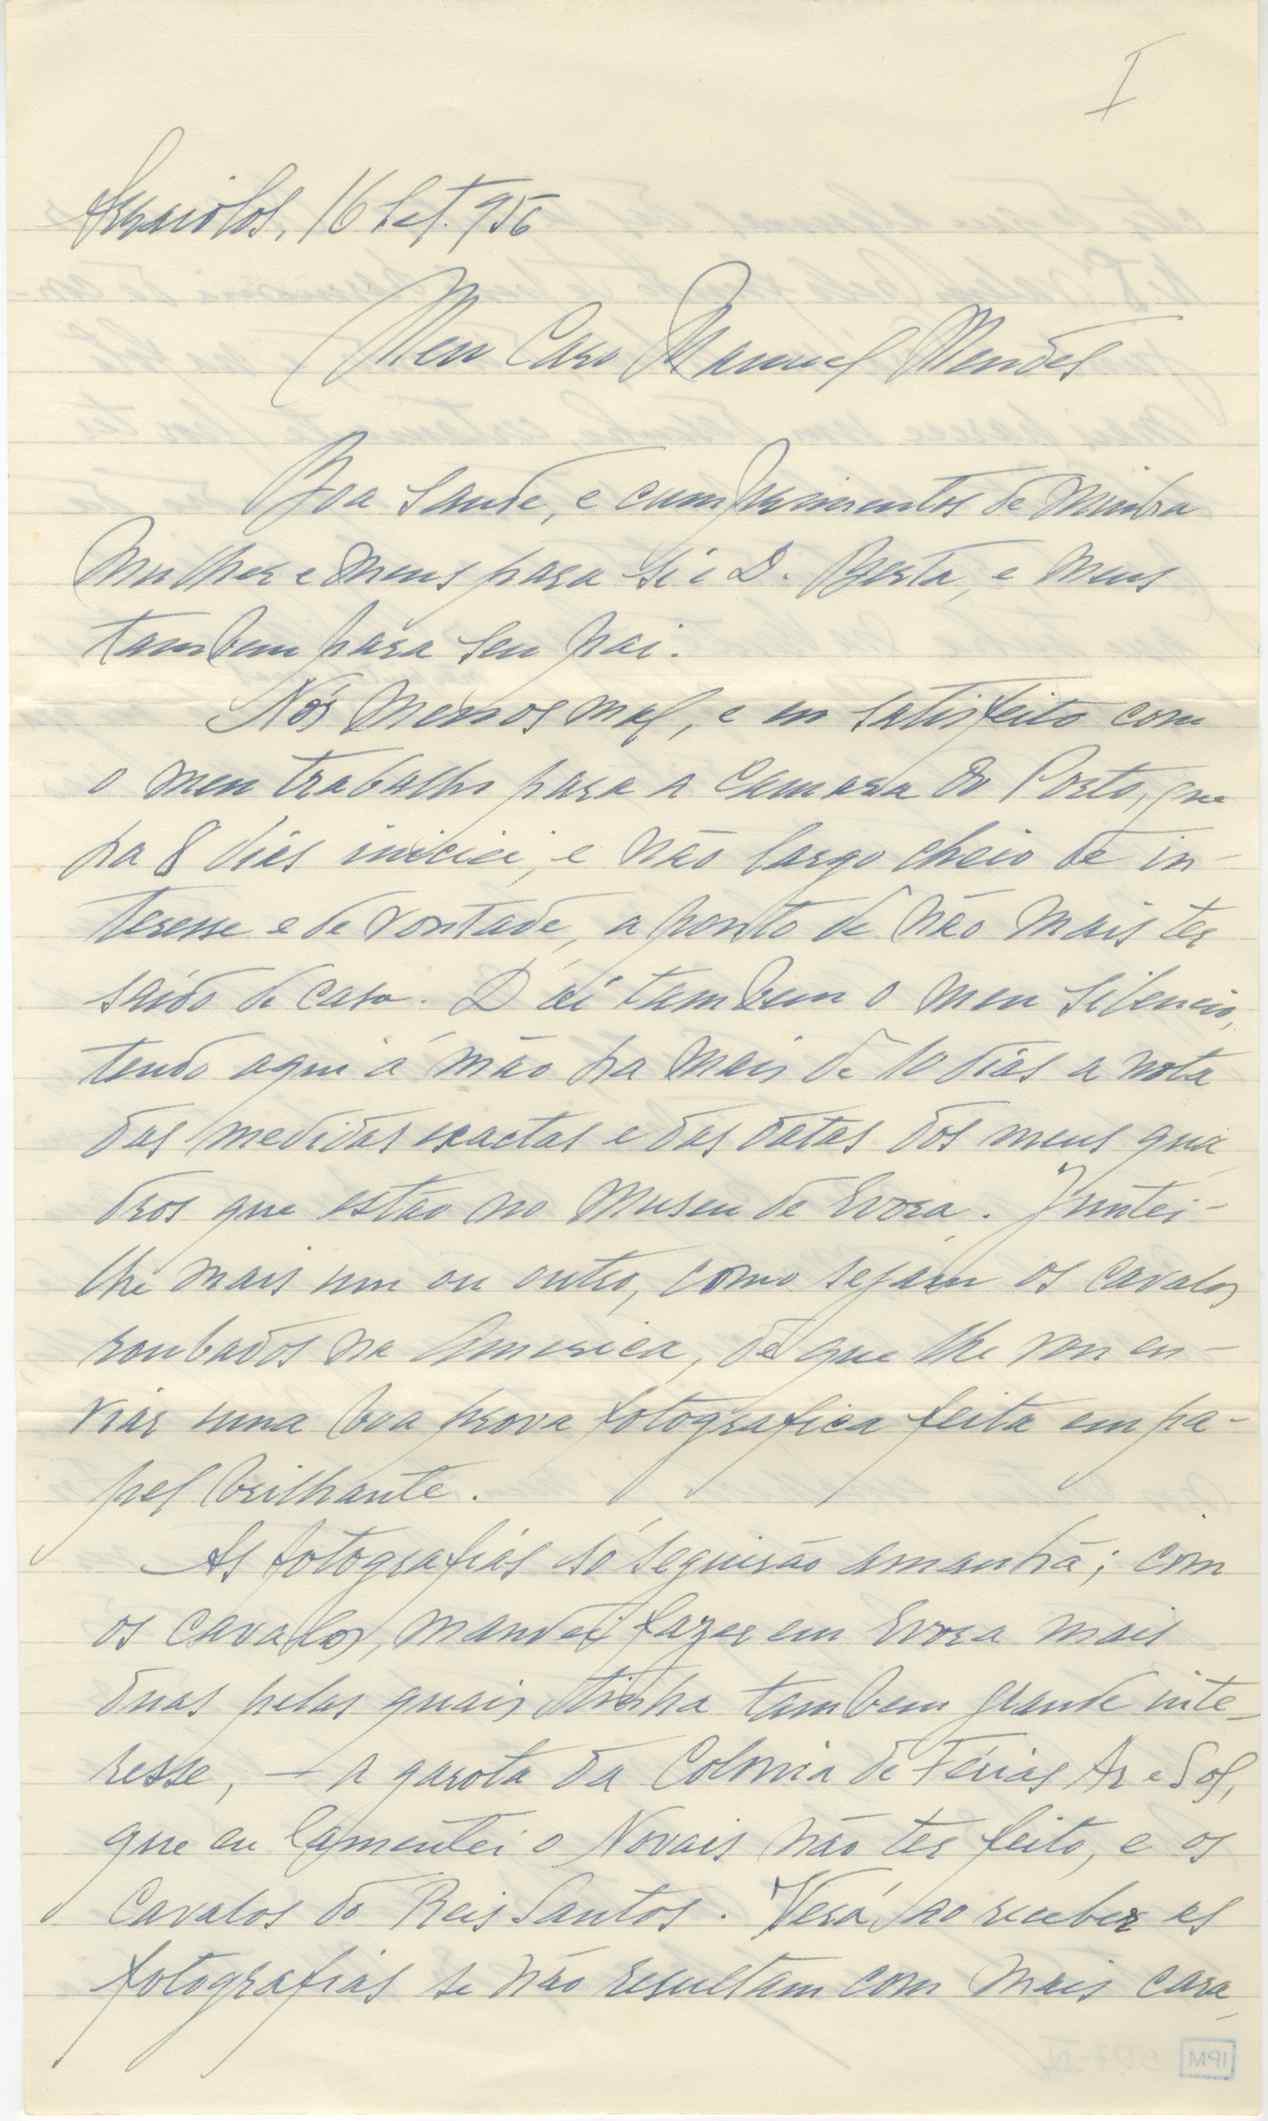 I
Arraiolos, 16 Set. 956
Meu Caro Manuel Mendes
Boa saude, e cumprimentos de minha
mulher e meus para si e D. Berta, e meus
tambem para seu pai.
Nós menos mal, e eu satisfeito com
o meu trabalho para a Camara do Porto, que
ha 8 dias iniciei, e não largo cheio de in-
teresse e de vontade, a ponto de não mais ter
saído de casa. D'aí tambem o meu silencio,
tendo aqui á mão ha mais de 10 dias a nota
das medidas exactas e das datas dos meus qua
dros que estão no Museu de Evora. Juntei-
lhe mais um ou outro, como sejam os cavalos
roubados na America, de que lhe vou en-
viar uma boa prova fotografica feita em pa-
pel brilhante.
As fotografias só seguirão amanhã; com
os cavalos, mandei fazer em Evora mais
duas pelas quais tinha tambem grande inte-
resse, - a garota da Colonia de Férias Ar e Sol,
que eu lamentei o Novais não ter feito, e os
Cavalos do Reis Santos. Verá ao receber as
fotografias se não resultam com mais cara-
IPM